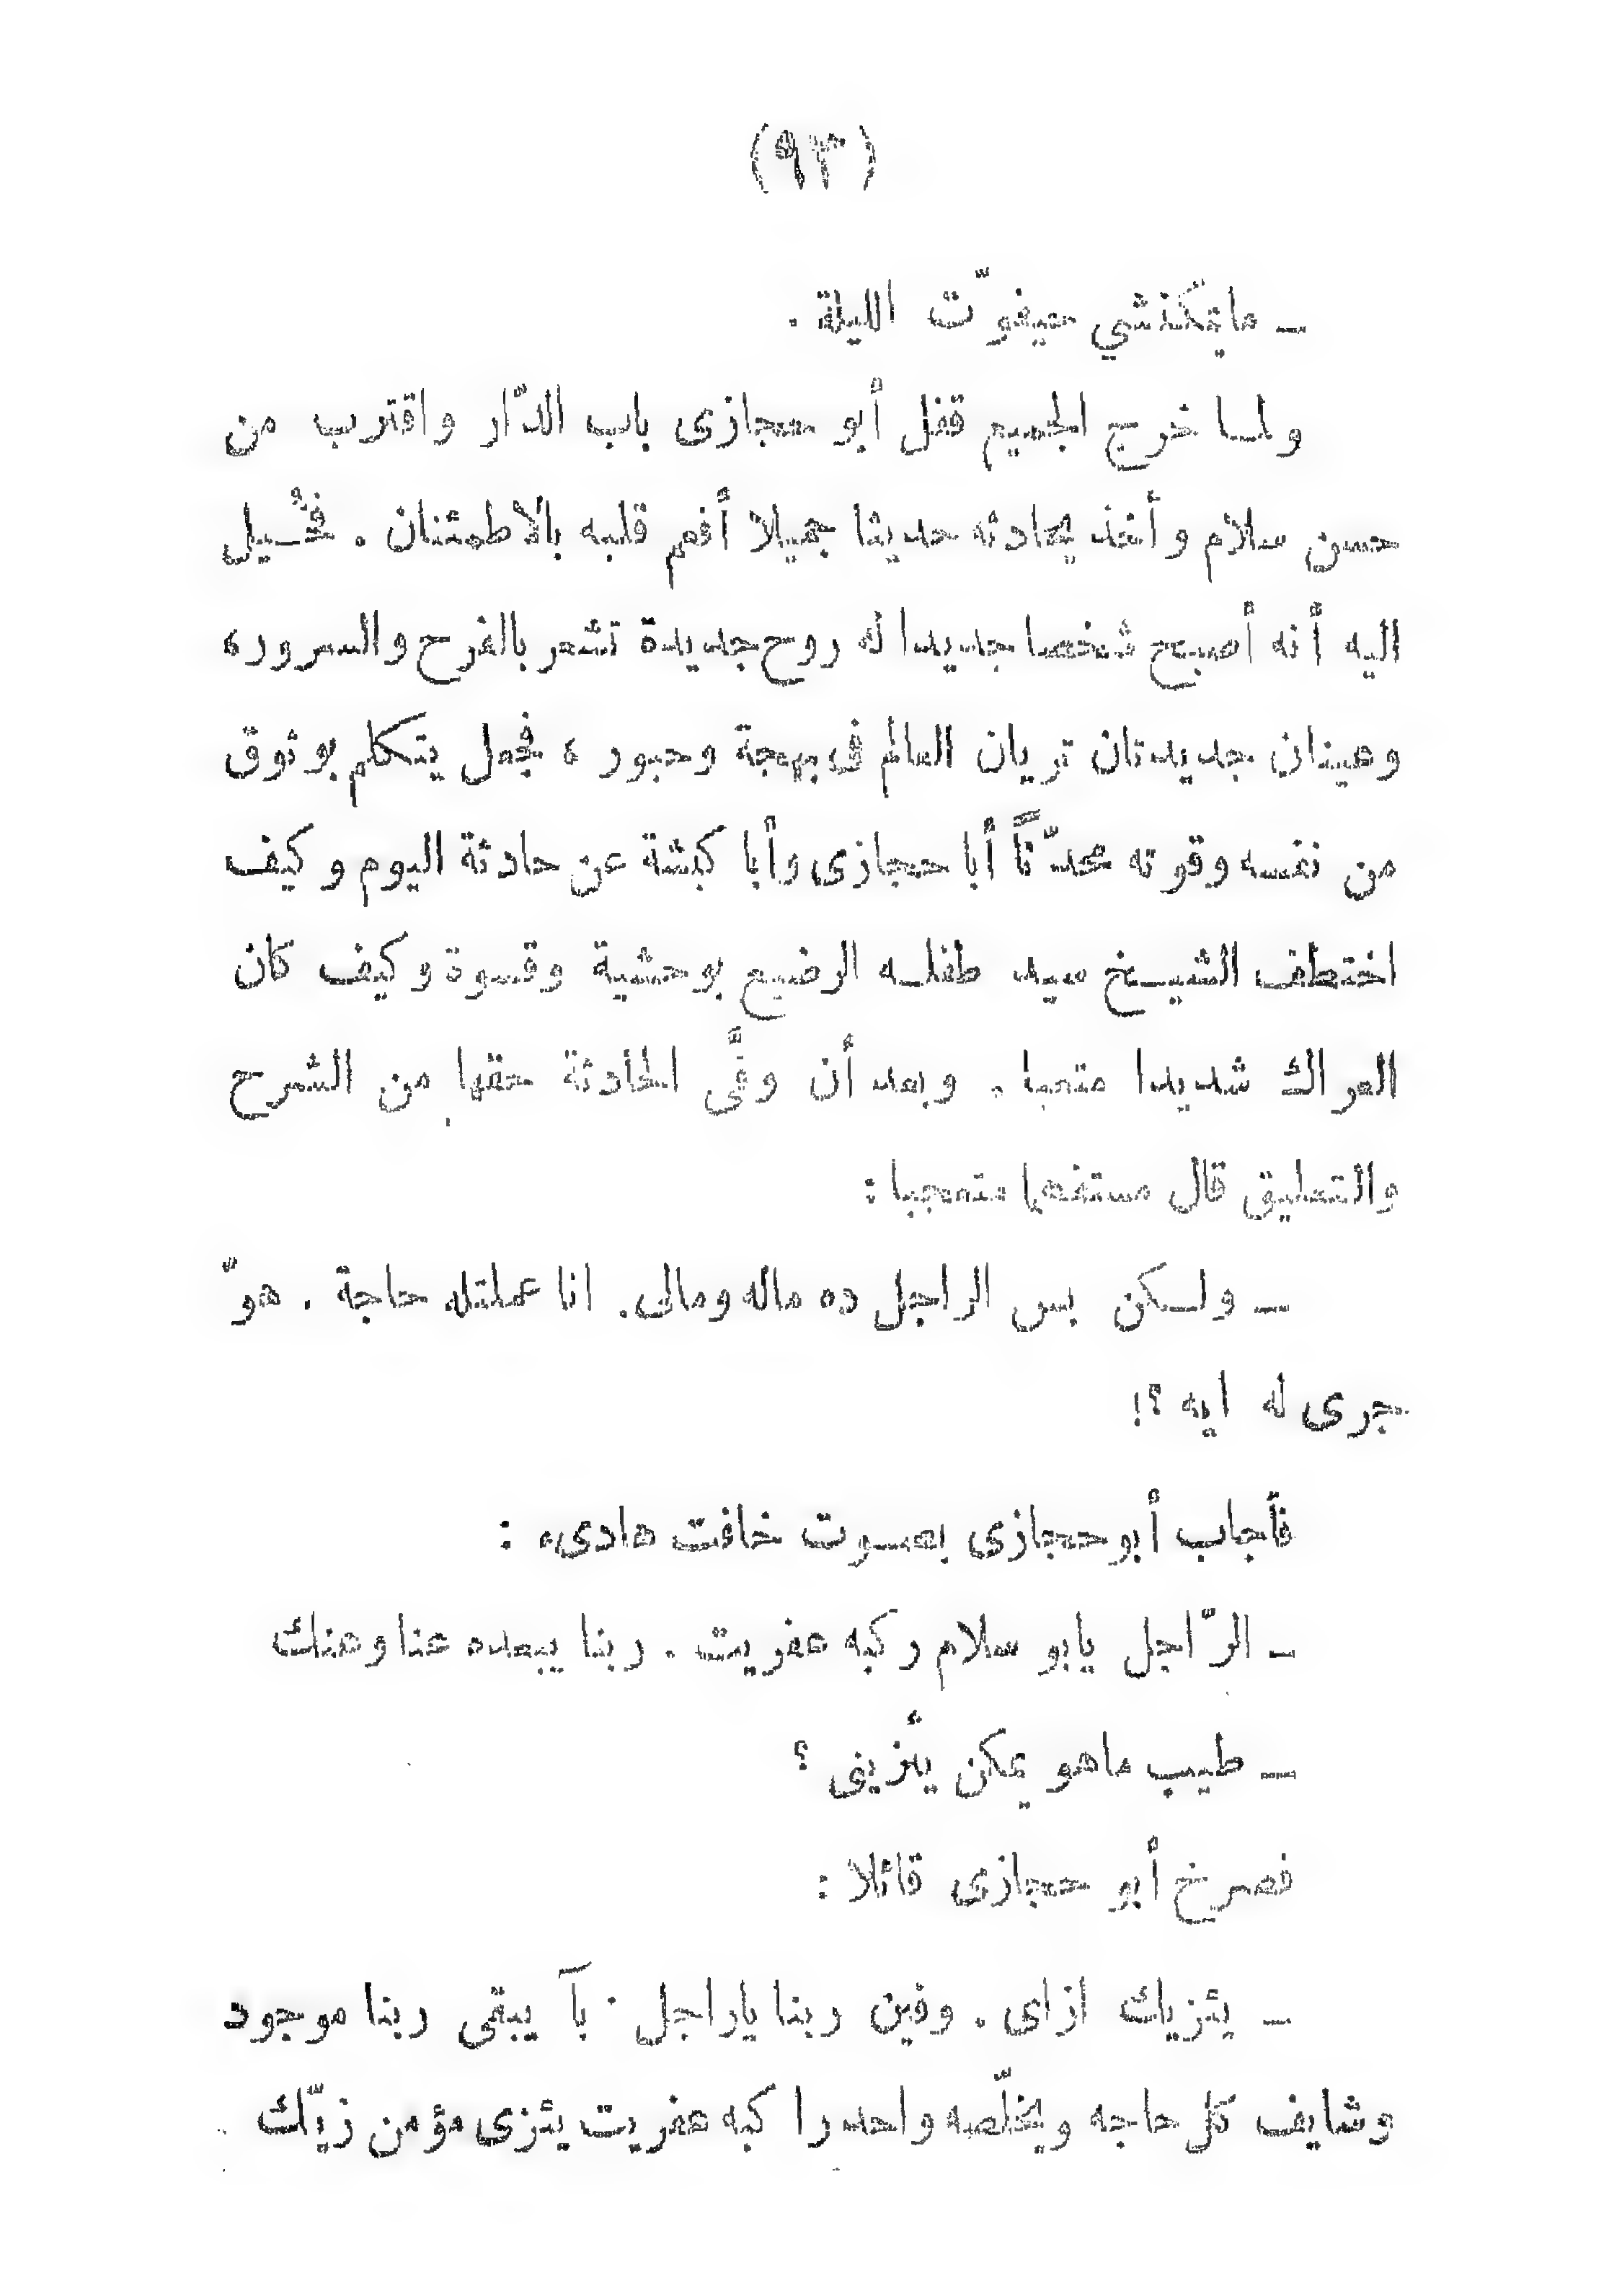 (٩٣)
ـ مايمكنشي حيفوّت الليلة .
ولما خرج الجميع قفل أبو حجازى باب الدّار واقترب من
حسن سلام وأخذ يحادثه حديثا جميلا أفعم قلبه بالاطمئنان . فخُيل
اليه أنه أصبح شخصا جديدا له روح جديدة تشعر بالفرح والسرور ،
وعينان جديدتان تريان العالم فى بهجة وحبور ، فجعل يتكلم بوثوق
من نفسه وقوته محدّثاً أبا حجازى وأبا كبشة عن حادثة اليوم وكيف
اختطف الشيخ سيد طفله الرضيع بوحشية وقسوة وكيف كان
العراك شديدا متعبا . وبعد أن وفَّى الحادثة حقها من الشرح
والتعليق قال مستفهما متعجبا :
ـ ولكن بس الراجل ده ماله ومالى. انا عملتله حاجة . هوّ
جرى له ايه ؟!
فأجاب أبو حجازى بصوت خافت هادىء :
ـ الرّاجل يابو سلام ركبه عفريت . ربنا يبعده عنا وعنك
ـ طيب ماهو يمكن يئزينى ؟
فصرخ أبو حجازى قائلا :
ـ يئزيك ازاى . وفين ربنا ياراجل . بآ يبقى ربنا موجود
وشايف كل حاجه ويخلّصه واحد راكبه عفريت يئزى مؤمن زيّك